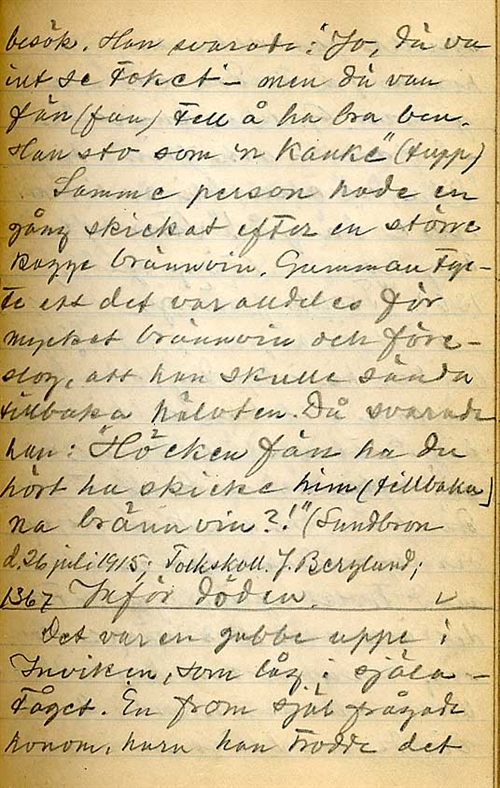 besök. Han svarade: "Jo, då va
int se tokct – men då van
fån (fan) tell å ha bra ben.
Han sto som 'n kauke" (tupp)
Samme person hade en
gång skickat efter en större
kagge brännvin. Gumman tyc-
te att det var alldeles för
mycket brännvin och före-
slog, att han skulle sända
tillbaka hälvten. Då svarade
han: "Höcken fån ha du
hört ha skicke him (tillbaka)
na brännvin?!" (Sundbron
d. 26 juli 1915; Folkskoll. J. Berglund;
1367 Inför döden. v
Det var en gubbe uppe i
Inviken, som låg i själa-
tåget. En from själ frågade
honom, huru han trodde det